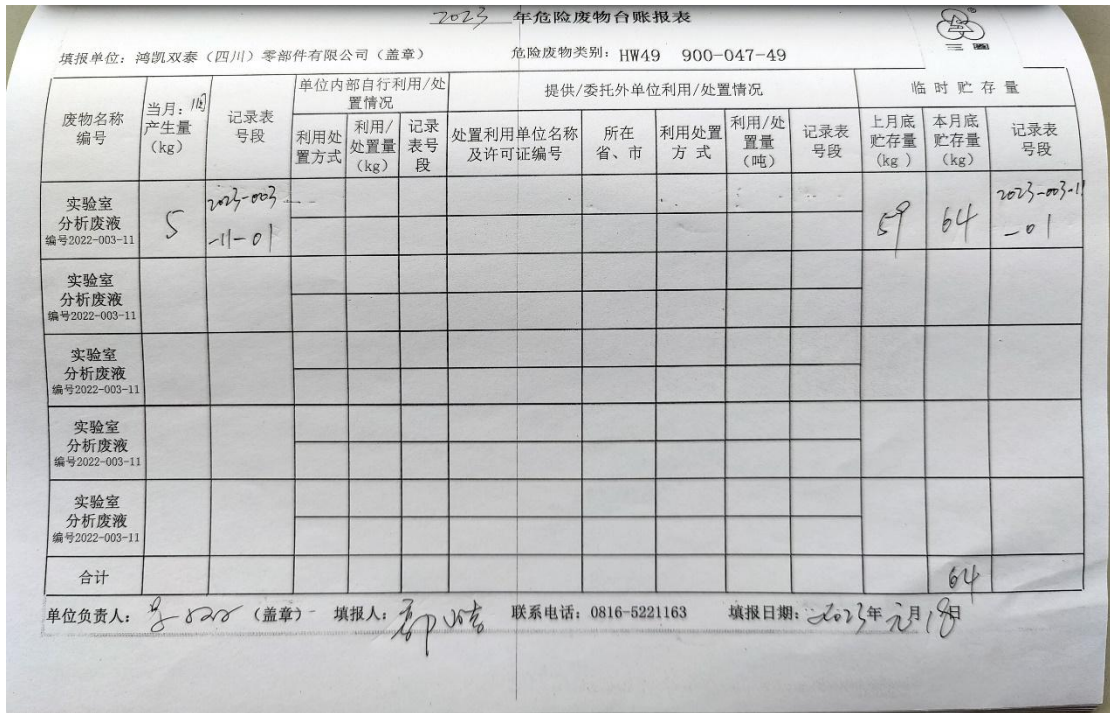 2023 年危险废物台账报表
三圈
填报单位：鸿凯双泰（四川）零部件有限公司（盖章） 危险废物类别：HW49 900-047-49
废物名称编号 当月：1月 产生量（kg） 记录表号段 单位内部自行利用/处置情况 提供/委托外单位利用/处置情况 临时贮存量
利用处置方式 利用/处置量（kg） 记录表号段 处置利用单位名称及许可证编号 所在省、市 利用处置方式 利用/处置量（吨） 记录表号段 上月底贮存量（kg） 本月底贮存量（kg） 记录表号段
实验室
分析废液
编号2022-003-11
5 2023-003
-11-01
59 64 2023-003-11
-01
实验室
分析废液
编号2022-003-11
实验室
分析废液
编号2022-003-11
实验室
分析废液
编号2022-003-11
实验室
分析废液
编号2022-003-11
合计 64
单位负责人： （盖章） 填报人： 联系电话：0816-5221163 填报日期：2023年元月18日